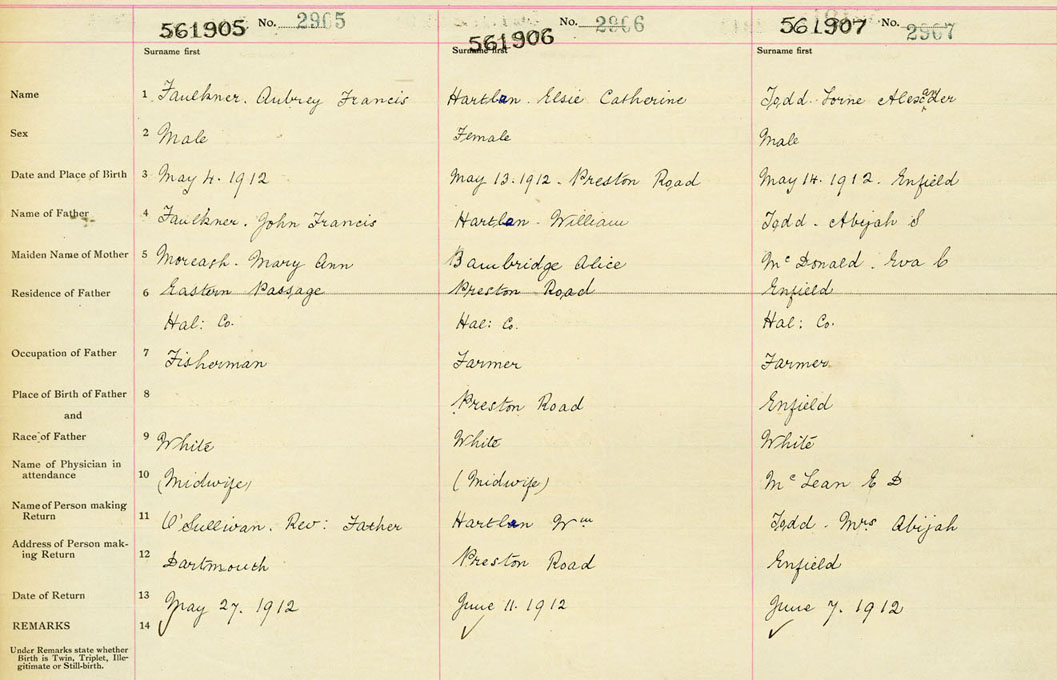 561905 No. 2905 561906 No. 2906 561907 No. 2907
Surname first Surname first Surname first
Name 1 Faulkner. Aubrey Francis Hartlan. Elsie Catherine Todd. Lorne Alexander
Sex 2 Male Female Male
Date and Place of Birth 3 May 4. 1912 May 13. 1912. Preston Road May 14. 1912. Enfield
Name of Father 4 Faulkner. John Francis Hartlan. William Todd. Abijah S
Maiden Name of Mother 5 Moreash. Mary Ann Bambridge Alice Mc Donald. Eva C
Residence of Father 6 Eastern Passage Preston Road Enfield
Hal: Co. Hal: Co. Hal: Co.
Occupation of Father 7 Fisherman Farmer Farmer
Place of Birth of Father 8 Preston Road Enfield
and
Race of Father 9 White White White
Name of Physician in
attendance 10 (Midwife) (Midwife) Mc Lean E D
Name of Person making
Return 11 O'Sullivan. Rev: Father Hartlan Wm Todd. Mrs Abijah
Address of Person mak-
ing Return 12 Dartmouth Preston Road Enfield
Date of Return 13 May 27. 1912 June 11. 1912 June 7. 1912
REMARKS 14 ✓ ✓ ✓
Under Remarks state whether
Birth is Twin, Triplet, Ille-
gitimate or Still-birth.